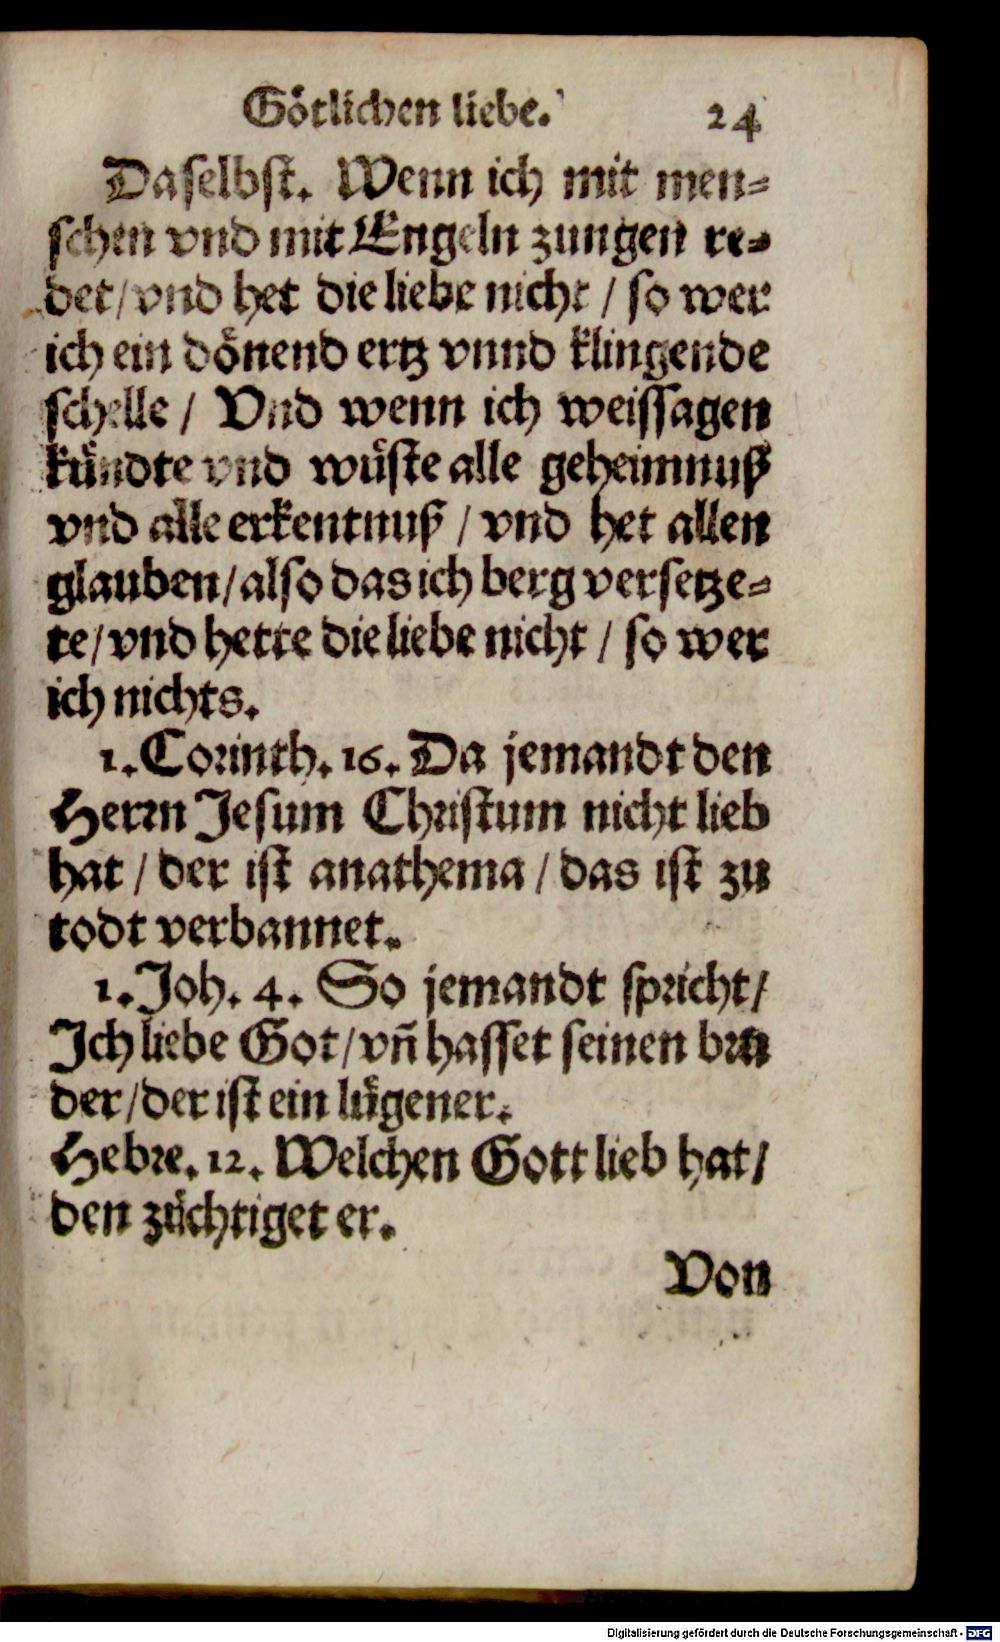 Götlichen liebe. 24
Daselbst. Wenn ich mit men-
schen vnd mit Engeln zungen re-
det/vnd het die liebe nicht / so wer
ich ein dönend ertz vnnd klingende
schelle / Vnd wenn ich weissagen
kündte vnd wüste alle geheimnuß
vnd alle erkentnuß / vnd het allen
glauben/also das ich berg versetze-
te/vnd hette die liebe nicht / so wer
ich nichts.
1. Corinth. 16. Da jemandt den
Herrn Jesum Christum nicht lieb
hat / der ist anathema / das ist zu
todt verbannet.
1. Joh. 4. So jemandt spricht/
Ich liebe Got/vñ hasset seinen bru
der/der ist ein lügener.
Hebre. 12. Welchen Gott lieb hat/
den züchtiget er.
Von
Digitalisierung gefördert durch die Deutsche Forschungsgemeinschaft - DFG